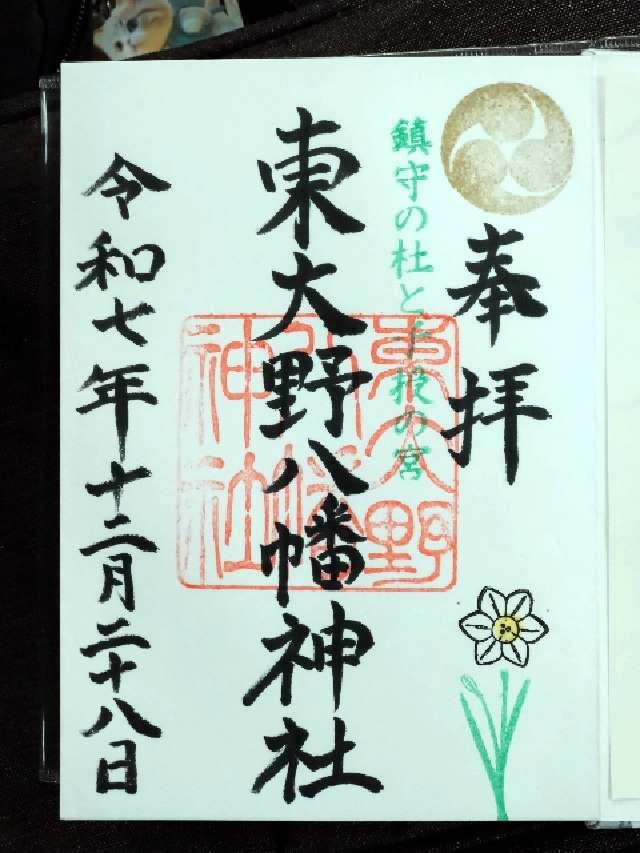 奉拝
鎮守の杜と千段の宮
東大野八幡神社
東大野
八幡
神社
令和七年十二月二十八日